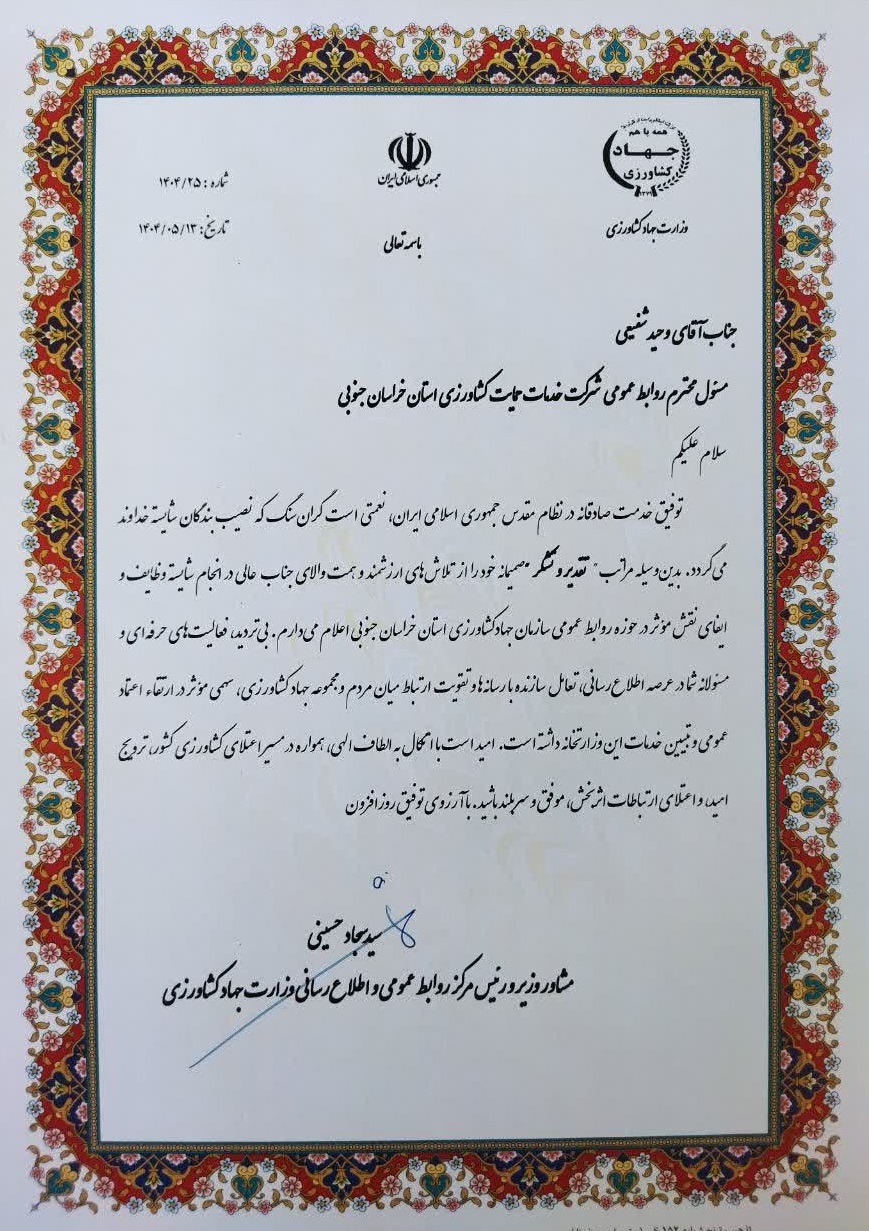 همه با هم
جهاد
کشاورزی
۱۳۷۹
وزارت جهاد کشاورزی
جمهوری اسلامی ایران
باسمه تعالی
شماره : ۱۴۰۴/۲۵
تاریخ: ۱۴۰۴/۰۵/۱۳
جناب آقای وحید شفیعی
مسئول محترم روابط عمومی شرکت خدمات حمایت کشاورزی استان خراسان جنوبی
سلام علیکم
توفیق خدمت صادقانه در نظام مقدس جمهوری اسلامی ایران، نعمتی است گران سنگ که نصیب بندگان شایسته خداوند
می گردد. بدین وسیله مراتب " تقدیر و تشکر "صمیمانه خود را از تلاش های ارزشمند و همت والای جناب عالی در انجام شایسته وظایف و
ایفای نقش مؤثر در حوزه روابط عمومی سازمان جهاد کشاورزی استان خراسان جنوبی اعلام می دارم. بی تردید، فعالیت های حرفه ای و
مسئولانه شما در عرصه اطلاع رسانی، تعامل سازنده با رسانه ها و تقویت ارتباط میان مردم و مجموعه جهاد کشاورزی، سهمی مؤثر در ارتقاء اعتماد
عمومی و تبیین خدمات این وزارتخانه داشته است. امید است با اتکال به الطاف الهی، همواره در مسیر اعتلای کشاورزی کشور، ترویج
امید، و اعتلای ارتباطات اثربخش، موفق و سربلند باشید. با آرزوی توفیق روز افزون
سید سجاد حسینی
مشاور وزیر و رئیس مرکز روابط عمومی و اطلاع رسانی وزارت جهاد کشاورزی